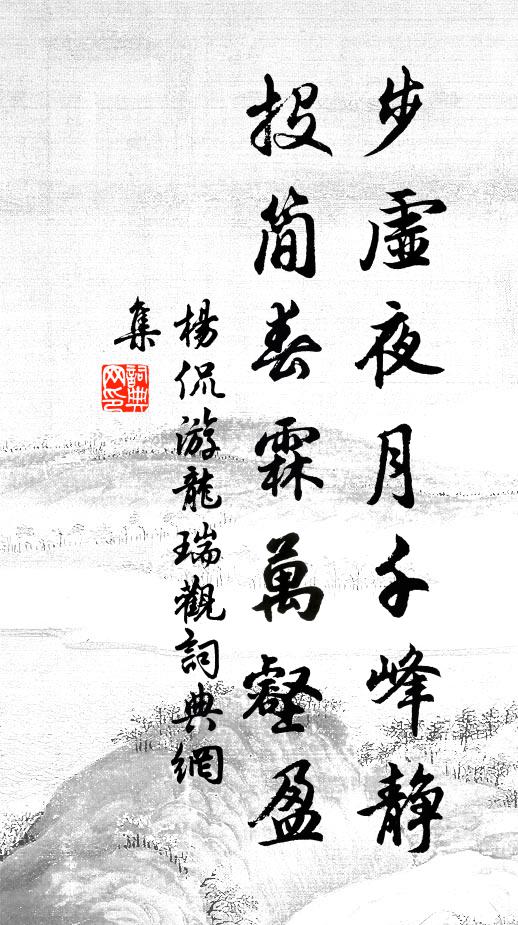 步虛夜月千峰静
投简春霖萬壑盈
楊侃游龍瑞觀詞典網
集
詞典
网印